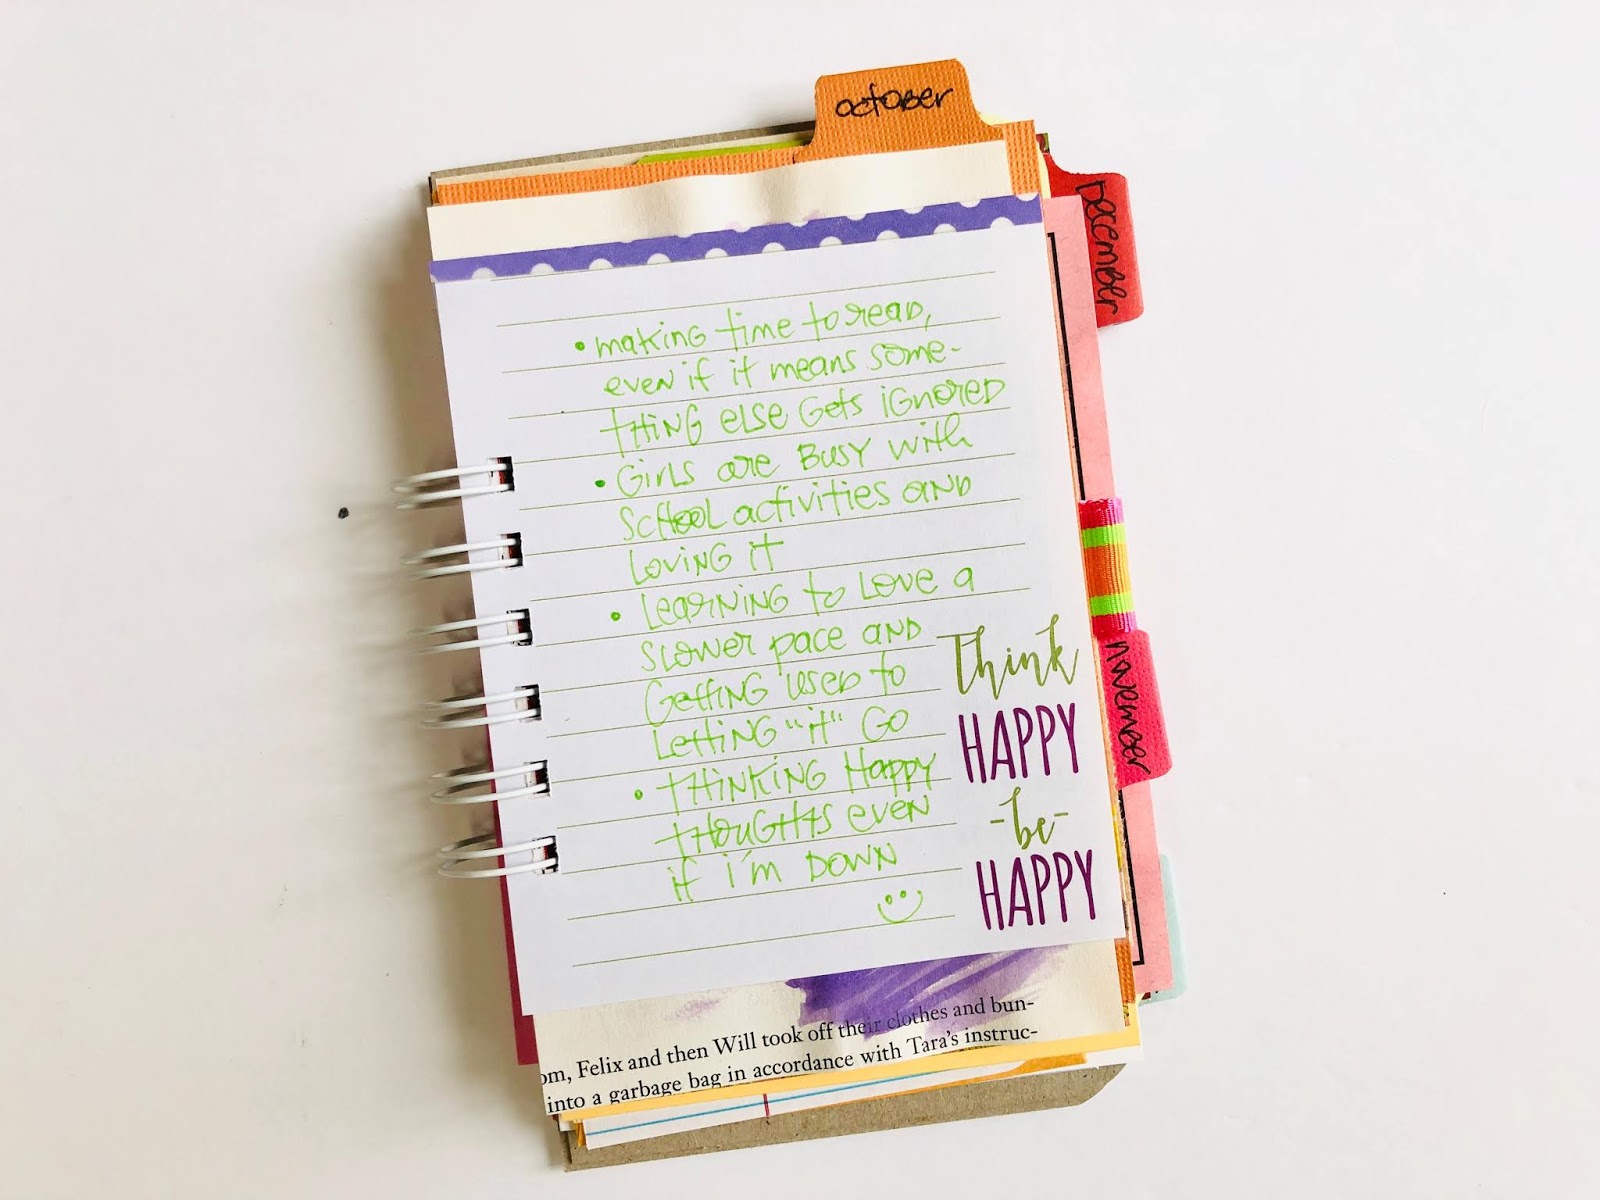 october
December
• making time to read,
even if it means some-
thing else gets ignored
• Girls are busy with
school activities and
loving it
• Learning to love a
slower pace and
getting used to
letting "it" go
• thinking happy
thoughts even
if i'm down
Think
HAPPY
-be-
HAPPY
november
om, Felix and then Will took off their clothes and bun-
into a garbage bag in accordance with Tara's instruc-